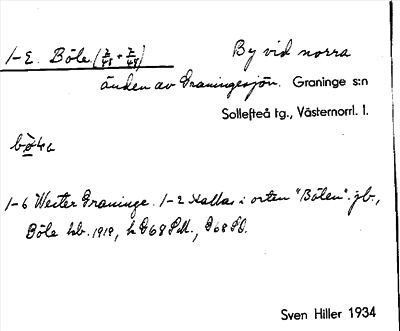 1-2. Böle (2/48 + 2/48) By vid norra
änden av Graningesjön. Graninge s:n
Sollefteå tg., Västernorrl. l.
1-6 Wester Graninge. 1-2 kallas i orten "Bölen". jb.,
Böle kb. 1919,
Sven Hiller 1934